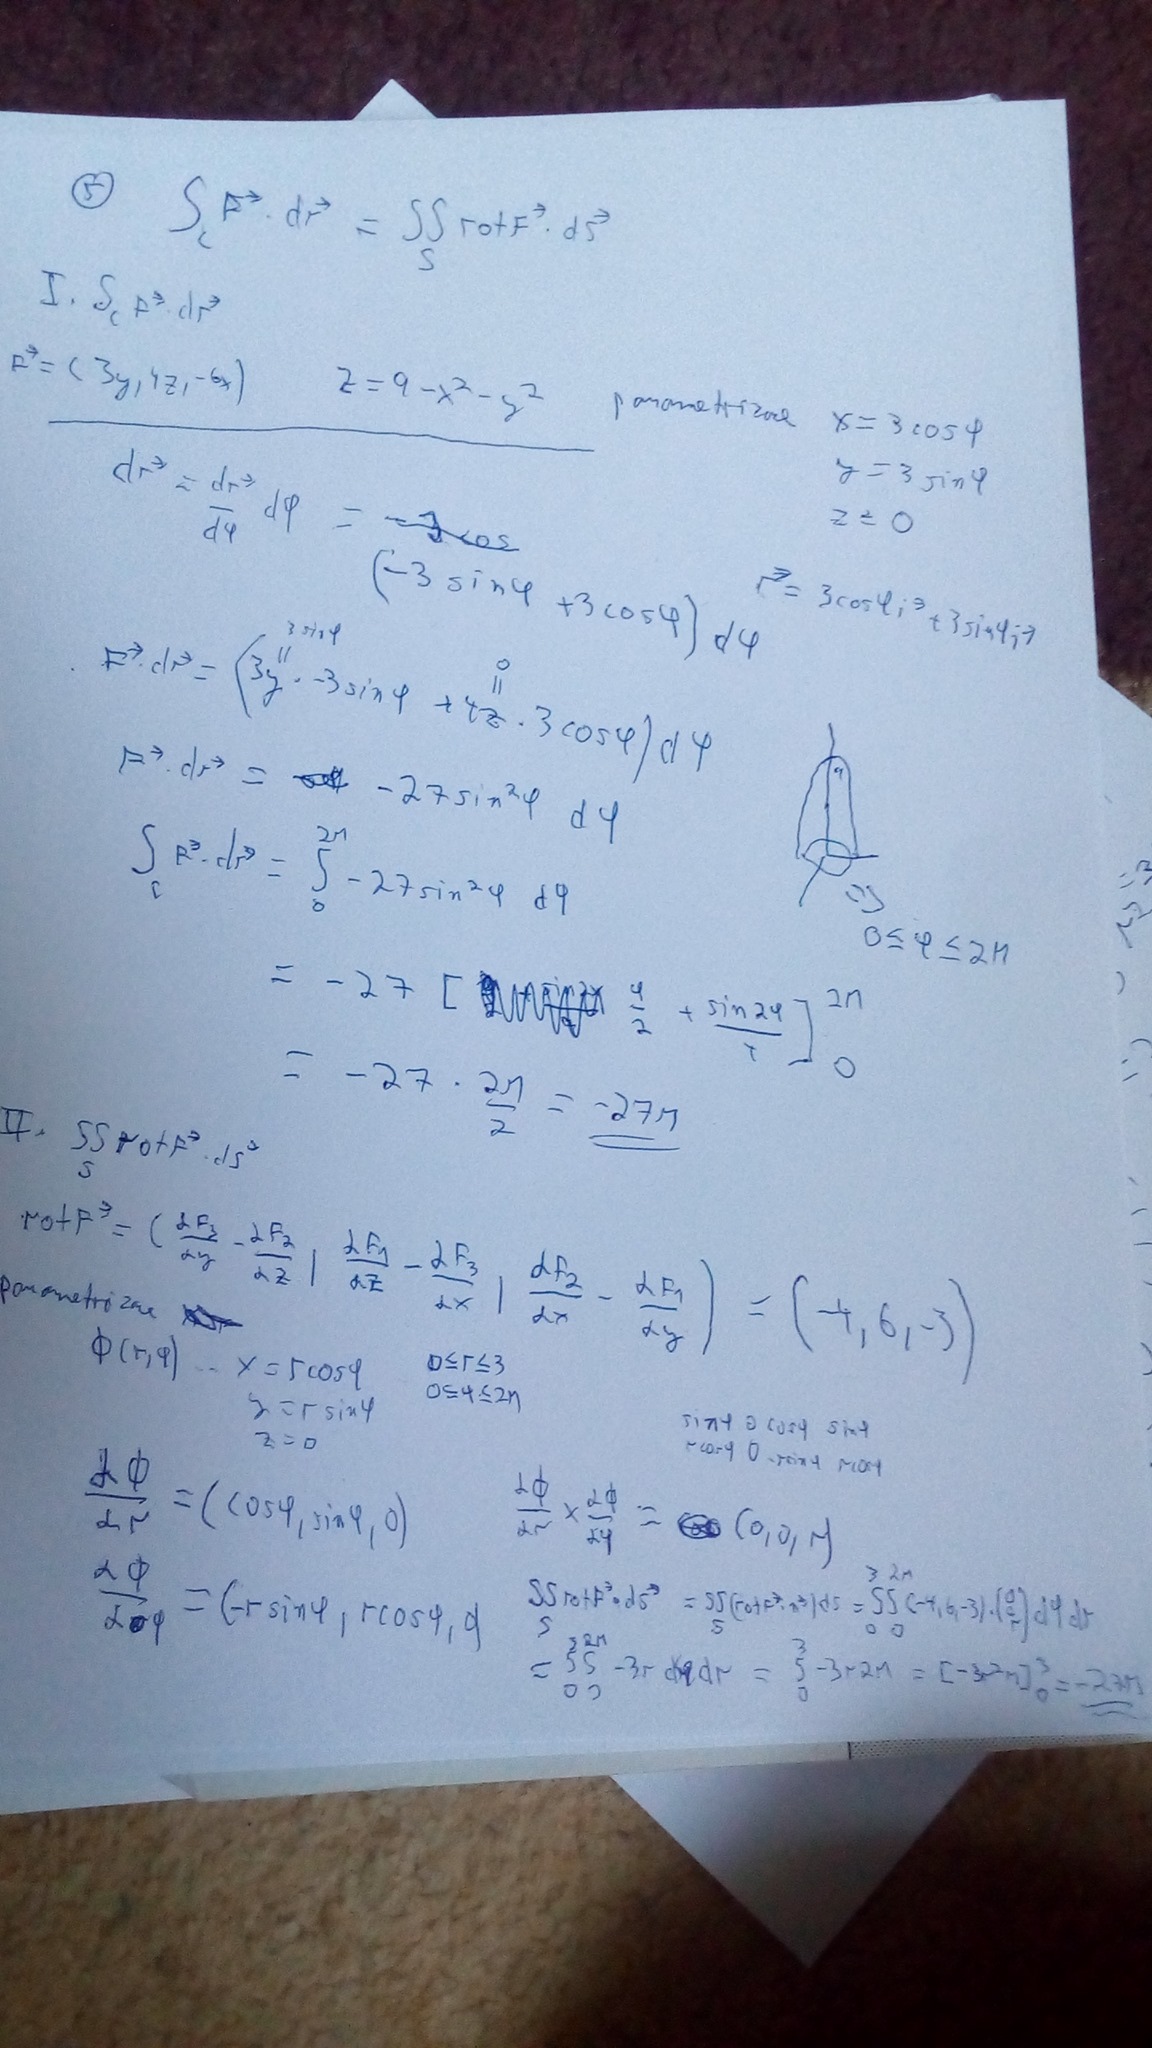 ⑤ ∫_C F⃗ · dr⃗ = ∬_S rot F⃗ · dS⃗
I. ∫_C F⃗ · dr⃗
F⃗ = (3y, 4z, -6x) z = 9 - x² - y² parametrizace x = 3cosφ
y = 3 sinφ
z = 0
dr⃗ = dr⃗/dφ dφ = (-3 sinφ + 3cosφ) dφ
r⃗ = 3cosφ i⃗ + 3sinφ j⃗
3 sinφ 0
F⃗ · dr⃗ = (3y · -3sinφ + 4z · 3cosφ) dφ
F⃗ · dr⃗ = -27sin²φ dφ
∫_C F⃗ · dr⃗ = ∫_0^{2π} -27sin²φ dφ
0 ≤ φ ≤ 2π
= -27 [ φ/2 + sin2φ/4 ]_0^{2π}
= -27 · 2π/2 = -27π
II. ∬_S rot F⃗ · dS⃗
rot F⃗ = (∂F₃/∂y - ∂F₂/∂z, ∂F₁/∂z - ∂F₃/∂x, ∂F₂/∂x - ∂F₁/∂y) = (-4, 6, -3)
parametrizace
ϕ(r,φ) .. x = rcosφ 0≤r≤3
y = r sinφ 0≤φ≤2π
z = 0
sinφ 0 cosφ sinφ
rcosφ 0 -rsinφ rcosφ
∂ϕ/∂r = (cosφ, sinφ, 0) ∂ϕ/∂r × ∂ϕ/∂φ = (0, 0, r)
∂ϕ/∂φ = (-r sinφ, rcosφ, 0)
∬_S rot F⃗ · dS⃗ = ∬_S (rot F⃗ · n⃗) dS = ∫_0^3 ∫_0^{2π} (-4, 6, -3) · (0 0 r) dφ dr
= ∫_0^3 ∫_0^{2π} -3r dφ dr = ∫_0^3 -3r 2π = [-3r²π]_0^3 = -27π